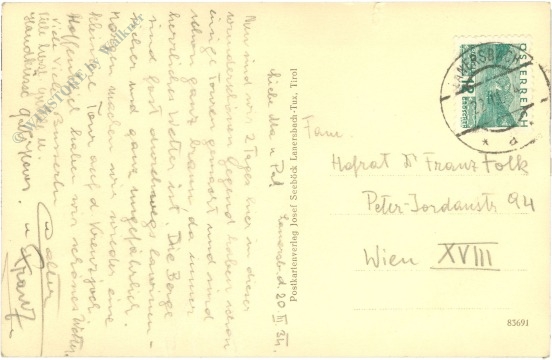 Liebe Ma u Pa!
Lanersbach d 20 III 34.
Nun sind wir 2 Tage hier in dieser
wunderschönen Gegend haben schon
einige Touren gemacht und sind
schon ganz braun da immer
herrliches Wetter ist. Die Berge
sind fast durchwegs lawinen-
sicher und ganz ungefährlich.
Morgen machen wir wieder eine
kleine Tour auf d. Kreuzjoch
Hoffentlich haben wir schönes Wetter.
viele viele Busserln
viele liebe Grüße u
Handküsse
Walter
u Franz
Postkartenverlag Josef Seeböck Lanersbach-Tux, Tirol
LANERSBACH
ÖSTERREICH
12
Fam.
Hofrat Dr Franz Folk
Peter-Jordanstr 94
Wien XVIII
83691